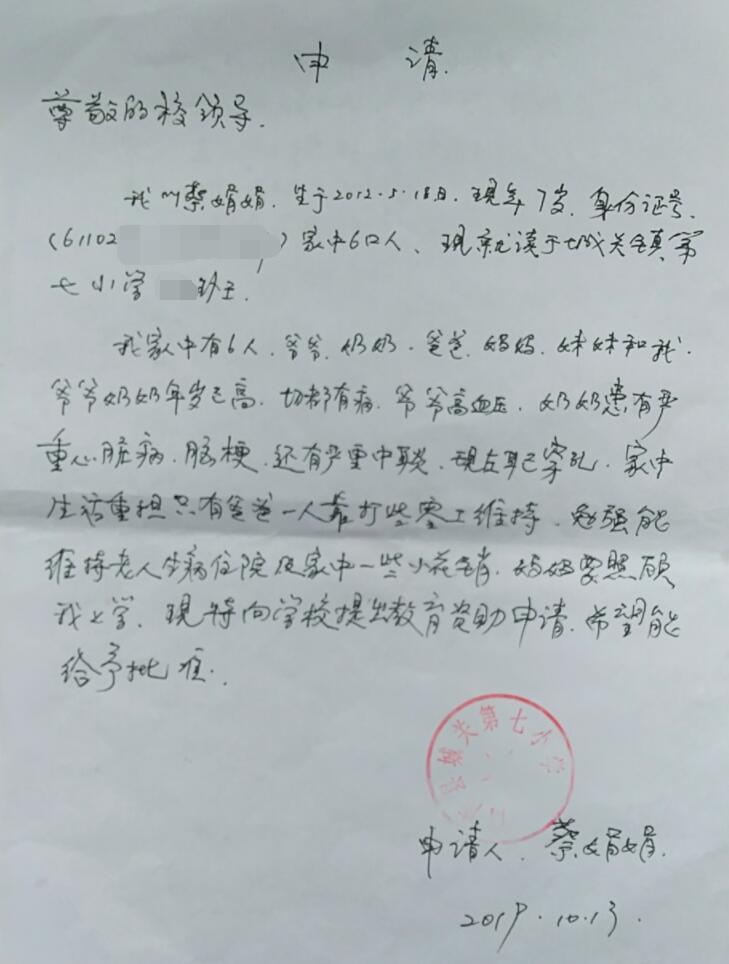 申 请
尊敬的校领导.
我叫蔡娟娟. 生于2012.5.18日. 现年7岁. 身份证号.
(61102 ) 家中6口人、现就读于城关镇第
七小学 班.
我家中有6人. 爷爷. 奶奶. 爸爸. 妈妈. 妹妹和我.
爷爷奶奶年岁已高. 都有病. 爷爷高血压. 奶奶患有严
重心脏病. 脑梗. 还有严重中耳炎. 现左耳已穿孔. 家中
生活重担只有爸爸一人靠打些零工维持. 勉强能
维持老人生病住院及家中一些小花销. 妈妈要照顾
我上学. 现特向学校提出教育资助申请. 希望能
给予批准.
县城关第七小学
申请人. 蔡娟娟.
2019.10.13.